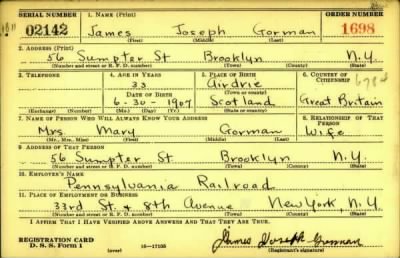 SERIAL NUMBER 1. NAME (Print) ORDER NUMBER
02142 James Joseph Gorman 1698
(First) (Middle) (Last)
2. ADDRESS (Print)
56 Sumpter St Brooklyn N.Y.
(Number and street or R. F. D. number) (Town) (County) (State)
3. TELEPHONE 4. AGE IN YEARS 5. PLACE OF BIRTH 6. COUNTRY OF CITIZENSHIP
33 Girdrie
DATE OF BIRTH (Town or county)
6-30-1907 Scotland Great Britain
(Exchange) (Number) (Mo.) (Day) (Yr.) (State or country)
7. NAME OF PERSON WHO WILL ALWAYS KNOW YOUR ADDRESS 8. RELATIONSHIP OF THAT PERSON
Mrs. Mary Gorman Wife
(Mr., Mrs., Miss) (First) (Middle) (Last)
9. ADDRESS OF THAT PERSON
56 Sumpter St Brooklyn N.Y.
(Number and street or R. F. D. number) (Town) (County) (State)
10. EMPLOYER'S NAME
Pennsylvania Railroad
11. PLACE OF EMPLOYMENT OR BUSINESS
33rd St & 8th Avenue New York, N.Y.
(Number and street or R. F. D. number) (Town) (County) (State)
I AFFIRM THAT I HAVE VERIFIED ABOVE ANSWERS AND THAT THEY ARE TRUE.
REGISTRATION CARD
D. S. S. Form 1 (over) 16—17105 James Joseph Gorman
(Registrant's signature)